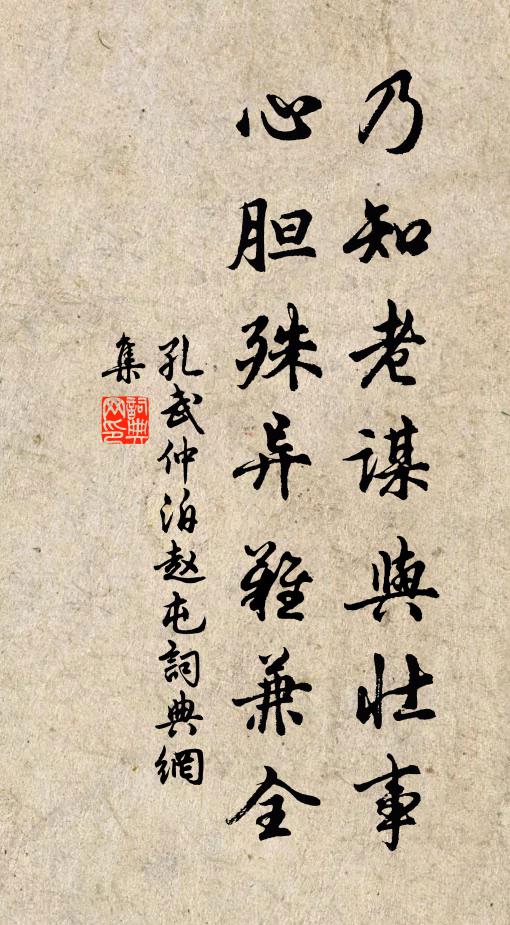 乃知老谋與壮事
心胆殊异難兼全
孔武仲泊赵屯詞典網
集
詞典
网印